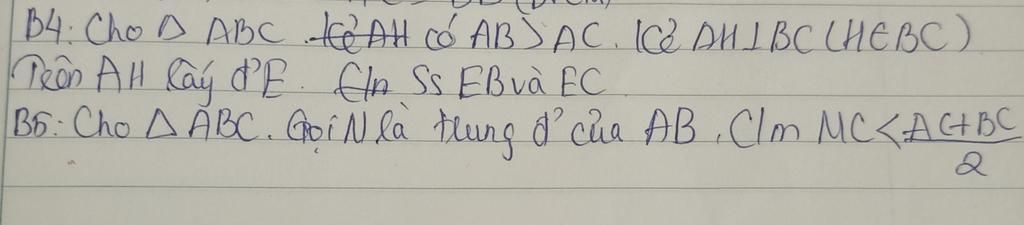 B4: Cho Δ ABC. Kẻ AH có AB > AC. Kẻ AH ⊥ BC (H ∈ BC)
Trên AH lấy đ' E. C/m Ss EB và EC
B5: Cho Δ ABC. Gọi N là trung đ' của AB. C/m MC < (AC+BC)/2